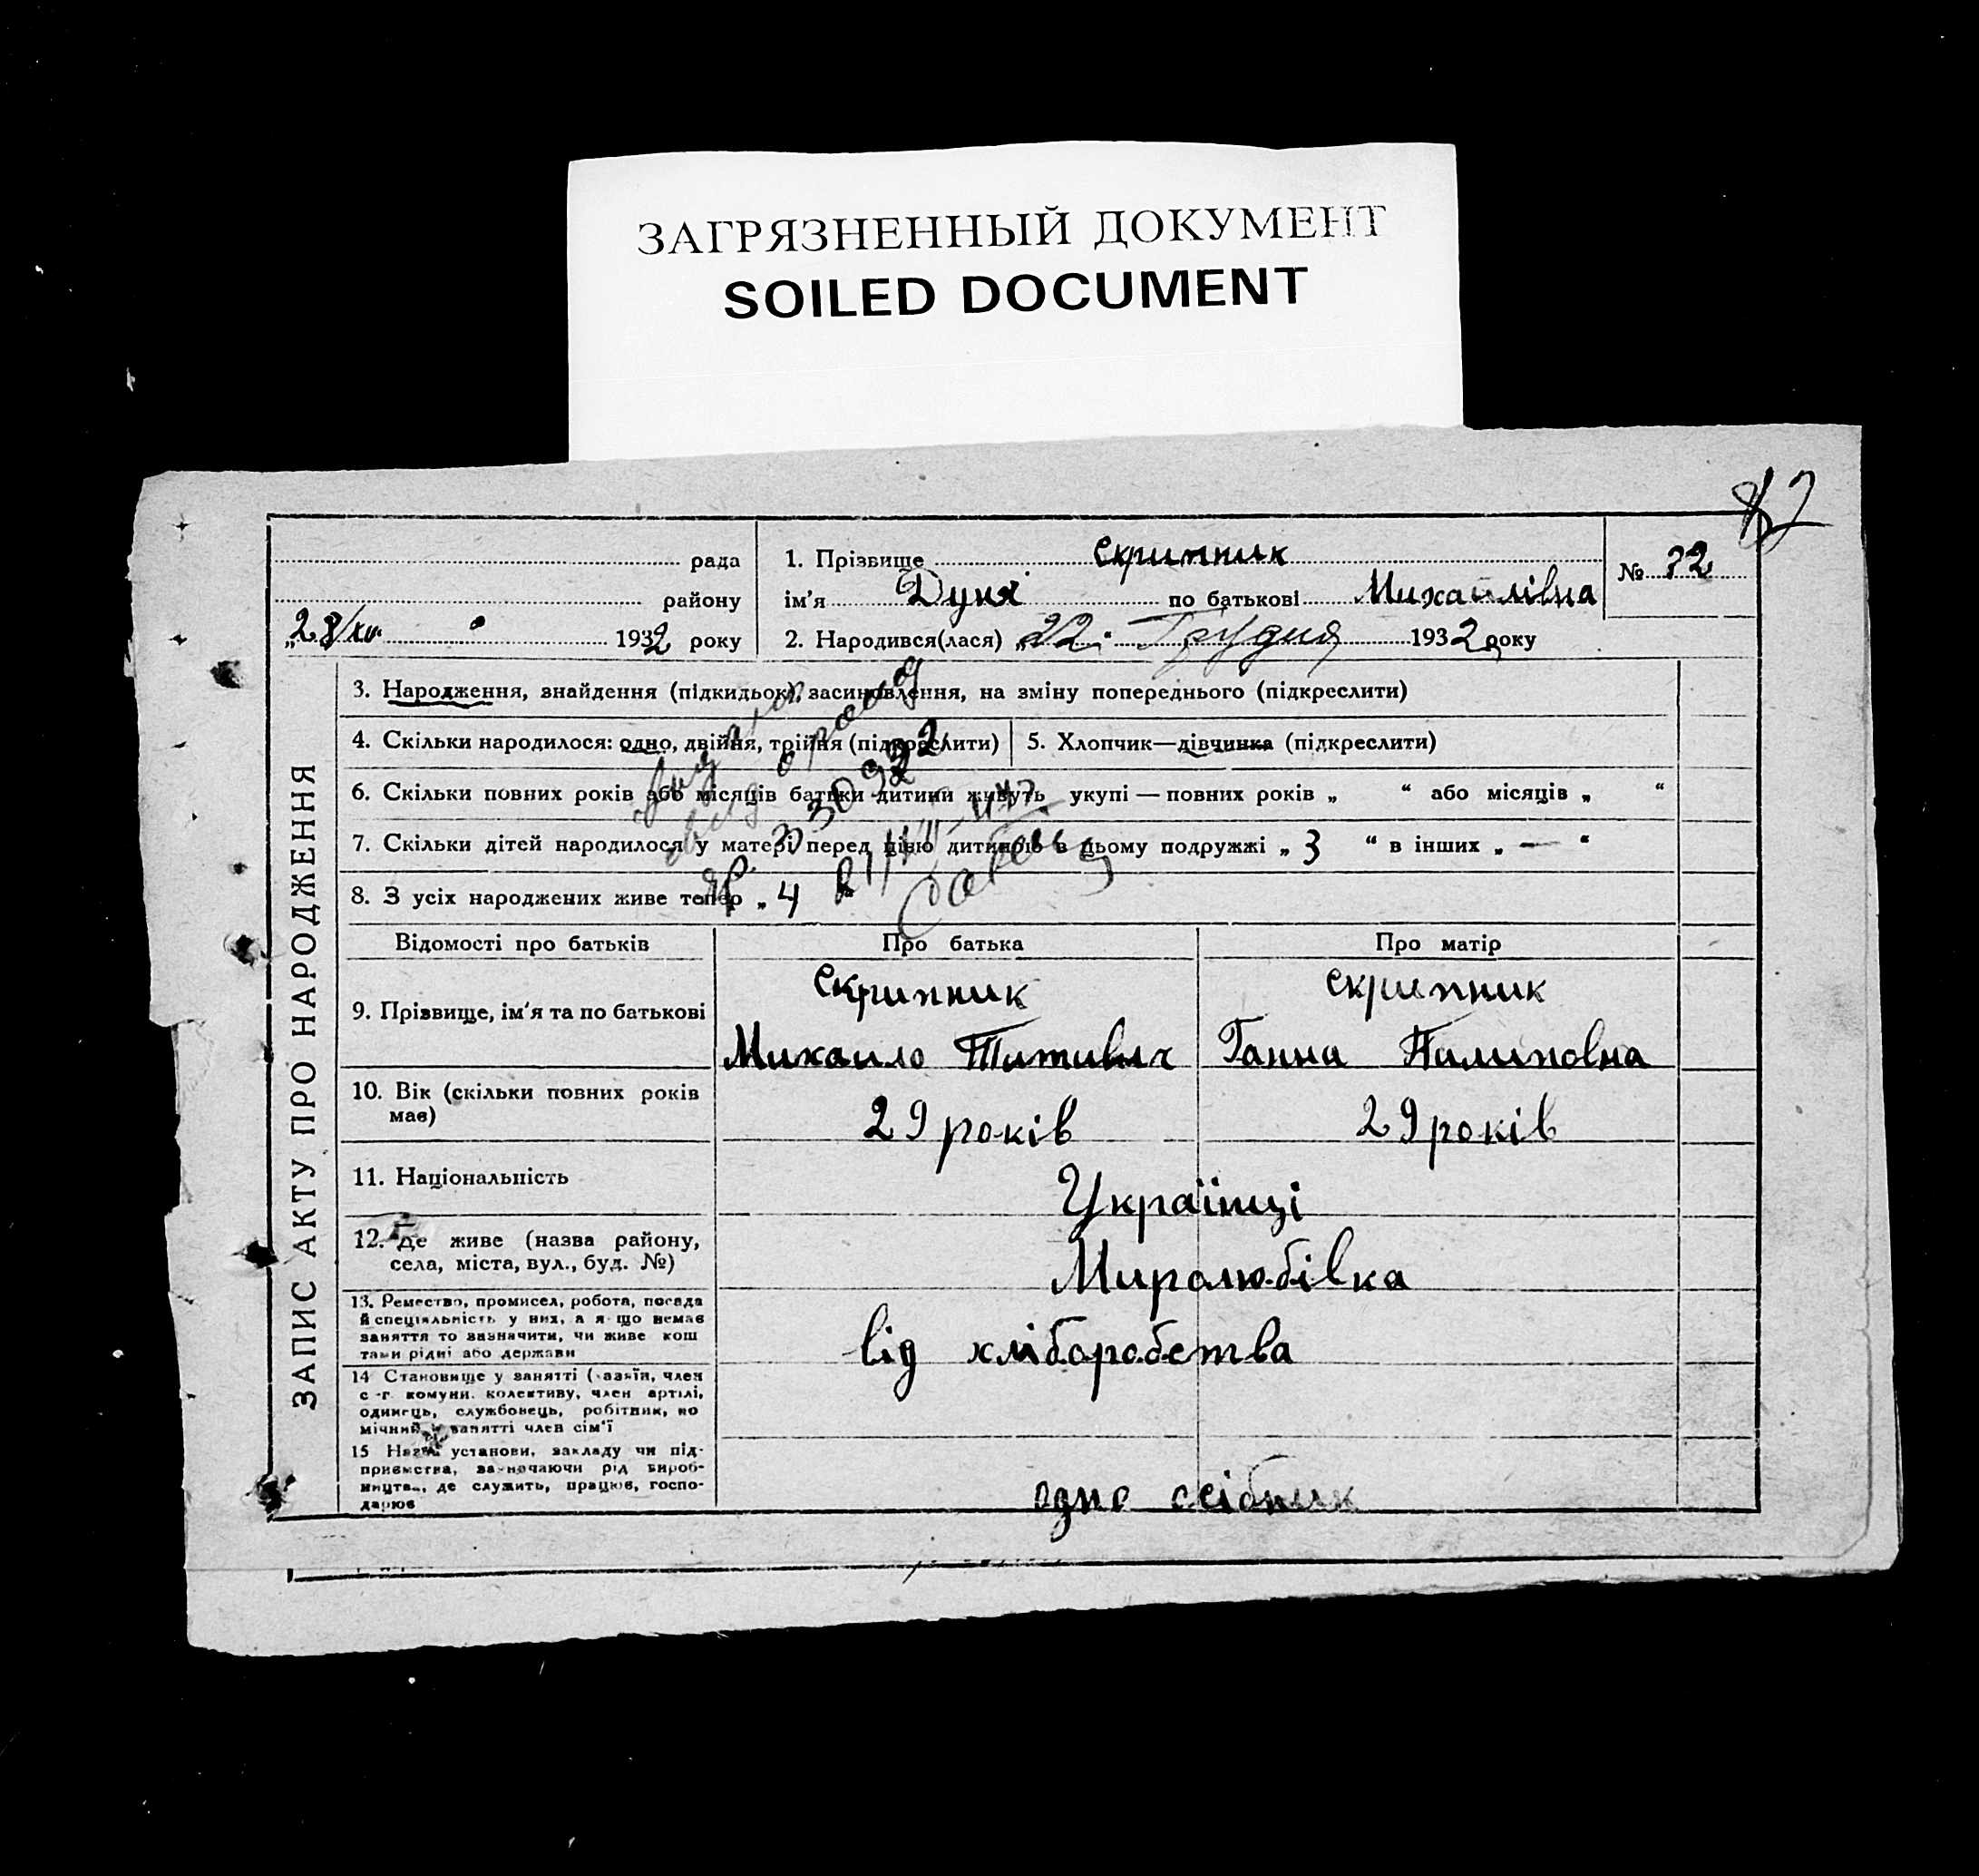 ЗАГРЯЗНЕННЫЙ ДОКУМЕНТ
SOILED DOCUMENT
рада
району
„28/XII 1932 року
1. Прізвище Скрипник
ім'я Дуня по батькові Михайлівна
2. Народився(лася) „22" Грудня 1932 року
№ 32
ЗАПИС АКТУ ПРО НАРОДЖЕННЯ
3. Народження, знайдення (підкидьок), засиновлення, на зміну попереднього (підкреслити)
4. Скільки народилося: одно, двійня, трійня (підкреслити) 5. Хлопчик—дівчинка (підкреслити)
6. Скільки повних років або місяців батьки дитини живуть укупі — повних років „ “ або місяців „ “
7. Скільки дітей народилося у матері перед цією дитиною в цьому подружжі „ 3 “ в інших „ — “
8. З усіх народжених живе тепер „ 4
Відомості про батьків Про батька Про матір
9. Прізвище, ім'я та по батькові
Скрипник скрипник
Михаило Титивич Ганна Пилиповна
10. Вік (скільки повних років має)
29 років 29 років
11. Національність Українці
12. Де живе (назва району,
села, міста, вул., буд. №) Миролюбівка
13. Ремество, промисел, робота, посада
й спеціяльність у них, а я що немає
заняття то зазначити, чи живе кош
тами рідні або держави
від хліборобства
14 Становище у занятті (хазяїн, член
с-г. комуни. колективу, член артілі,
одинець, службовець, робітник, по
мічний у занятті член сім'ї
15 Назва установи, закладу чи під-
приємства, зазначаючи рід вироб-
ництва, де служить, працює, госпо-
дарює
одно осібник